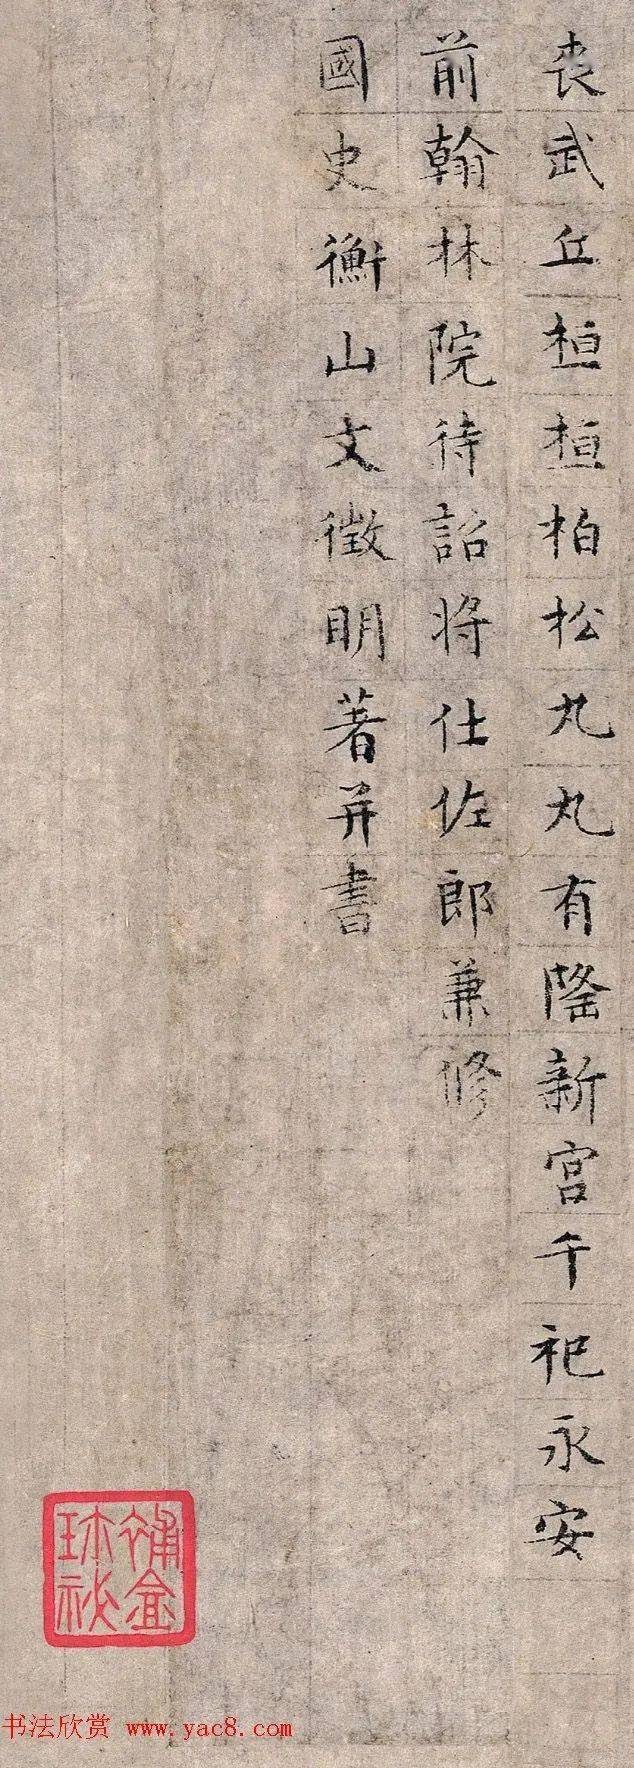 丧武丘桓桓柏松丸丸有隆新宮千祀永安
前翰林院待詔将仕佐郎兼修
國史衡山文徵明著并書
補盦
珎祕
书法欣赏 www.yac8.com